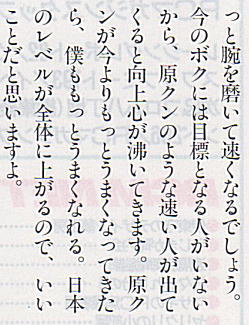 っと腕を磨いて速くなるでしょう。
今のボクには目標となる人がいない
から、原クンのような速い人が出て
くると向上心が沸いてきます。原ク
ンが今よりもっとうまくなってきた
ら、僕ももっとうまくなれる。日本
のレベルが全体に上がるので、いい
ことだと思いますよ。